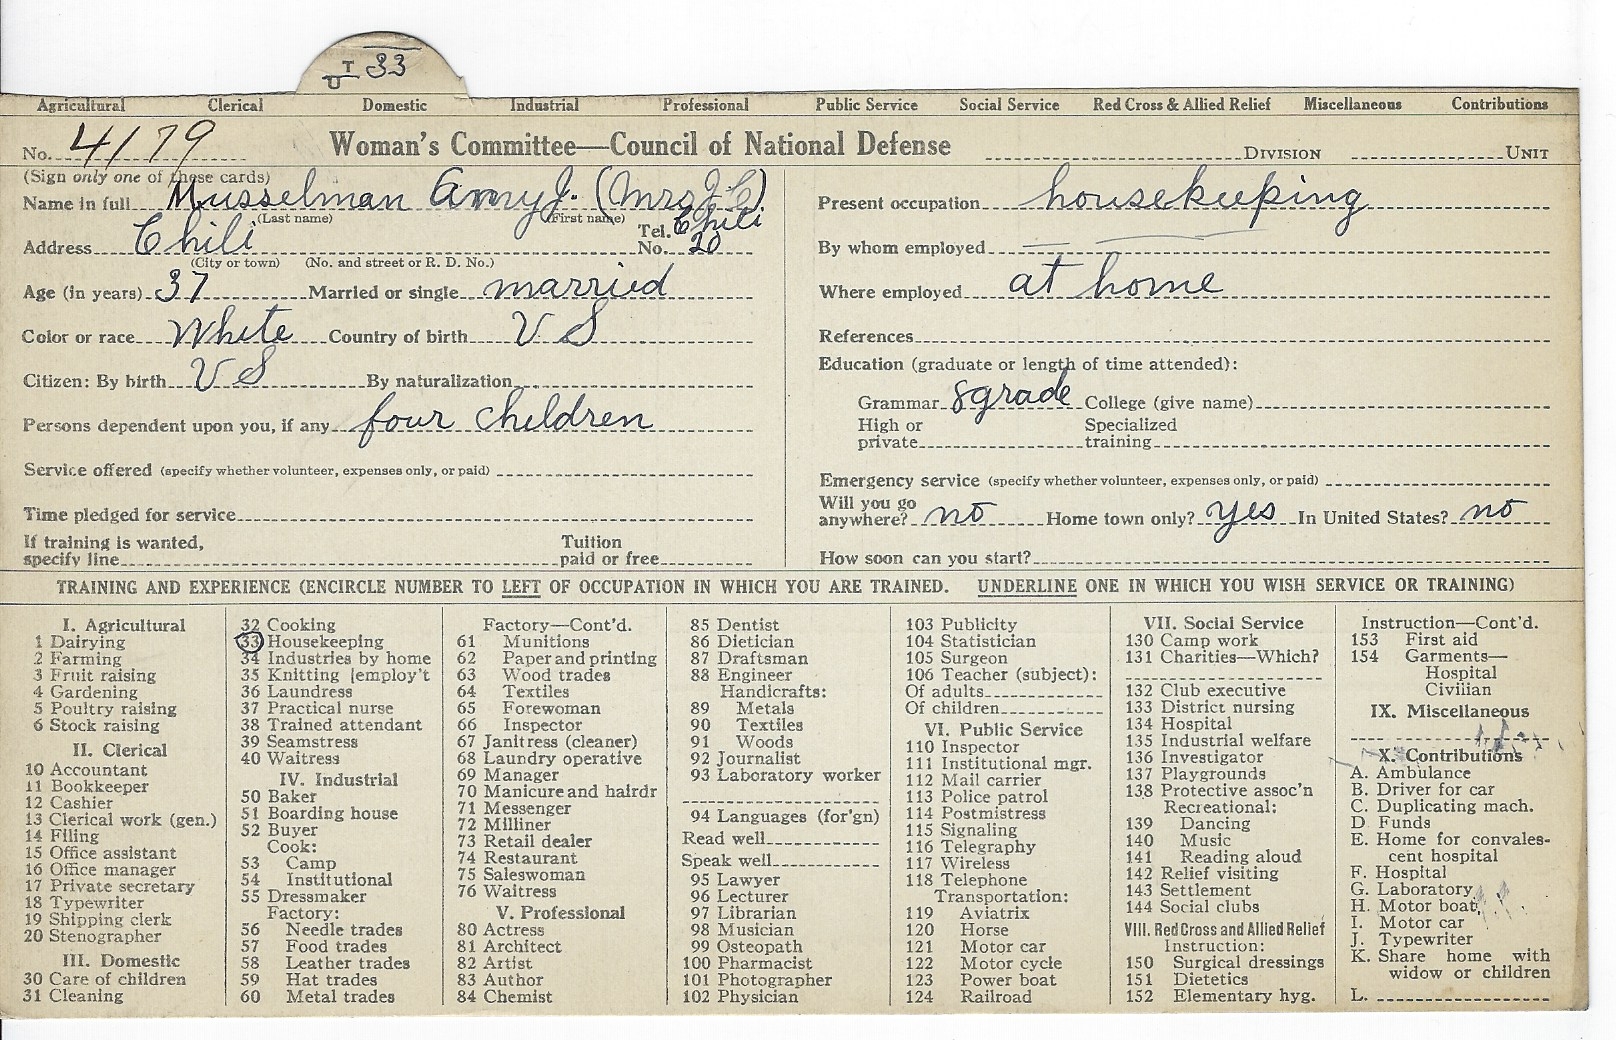 U T 33
Agricultural Clerical Domestic Industrial Professional Public Service Social Service Red Cross & Allied Relief Miscellaneous Contributions
No. 4179 Woman's Committee—Council of National Defense DIVISION UNIT
(Sign only one of these cards)
Name in full Musselman Amy J. (Mrs J. C.)
(Last name) (First name)
Address Chili Tel. No. Chili 20
(City or town) (No. and street or R. D. No.)
Age (in years) 37 Married or single married
Color or race White Country of birth U S
Citizen: By birth U S By naturalization
Persons dependent upon you, if any four children
Service offered (specify whether volunteer, expenses only, or paid)
Time pledged for service
If training is wanted, specify line Tuition paid or free
Present occupation housekeeping
By whom employed
Where employed at home
References
Education (graduate or length of time attended):
Grammar 8 grade College (give name)
High or private Specialized training
Emergency service (specify whether volunteer, expenses only, or paid)
Will you go anywhere? no Home town only? yes In United States? no
How soon can you start?
TRAINING AND EXPERIENCE (ENCIRCLE NUMBER TO LEFT OF OCCUPATION IN WHICH YOU ARE TRAINED. UNDERLINE ONE IN WHICH YOU WISH SERVICE OR TRAINING)
I. Agricultural
1 Dairying
2 Farming
3 Fruit raising
4 Gardening
5 Poultry raising
6 Stock raising
II. Clerical
10 Accountant
11 Bookkeeper
12 Cashier
13 Clerical work (gen.)
14 Filing
15 Office assistant
16 Office manager
17 Private secretary
18 Typewriter
19 Shipping clerk
20 Stenographer
III. Domestic
30 Care of children
31 Cleaning
32 Cooking
33 Housekeeping
34 Industries by home
35 Knitting [employ't
36 Laundress
37 Practical nurse
38 Trained attendant
39 Seamstress
40 Waitress
IV. Industrial
50 Baker
51 Boarding house
52 Buyer
Cook:
53 Camp
54 Institutional
55 Dressmaker
Factory:
56 Needle trades
57 Food trades
58 Leather trades
59 Hat trades
60 Metal trades
Factory—Cont'd.
61 Munitions
62 Paper and printing
63 Wood trades
64 Textiles
65 Forewoman
66 Inspector
67 Janitress (cleaner)
68 Laundry operative
69 Manager
70 Manicure and hairdr
71 Messenger
72 Milliner
73 Retail dealer
74 Restaurant
75 Saleswoman
76 Waitress
V. Professional
80 Actress
81 Architect
82 Artist
83 Author
84 Chemist
85 Dentist
86 Dietician
87 Draftsman
88 Engineer
Handicrafts:
89 Metals
90 Textiles
91 Woods
92 Journalist
93 Laboratory worker
94 Languages (for'gn)
Read well
Speak well
95 Lawyer
96 Lecturer
97 Librarian
98 Musician
99 Osteopath
100 Pharmacist
101 Photographer
102 Physician
103 Publicity
104 Statistician
105 Surgeon
106 Teacher (subject):
Of adults
Of children
VI. Public Service
110 Inspector
111 Institutional mgr.
112 Mail carrier
113 Police patrol
114 Postmistress
115 Signaling
116 Telegraphy
117 Wireless
118 Telephone
Transportation:
119 Aviatrix
120 Horse
121 Motor car
122 Motor cycle
123 Power boat
124 Railroad
VII. Social Service
130 Camp work
131 Charities—Which?
132 Club executive
133 District nursing
134 Hospital
135 Industrial welfare
136 Investigator
137 Playgrounds
138 Protective assoc'n
Recreational:
139 Dancing
140 Music
141 Reading aloud
142 Relief visiting
143 Settlement
144 Social clubs
VIII. Red Cross and Allied Relief
Instruction:
150 Surgical dressings
151 Dietetics
152 Elementary hyg.
Instruction—Cont'd.
153 First aid
154 Garments—
Hospital
Civilian
IX. Miscellaneous
X. Contributions
A. Ambulance
B. Driver for car
C. Duplicating mach.
D. Funds
E. Home for convales-
cent hospital
F. Hospital
G. Laboratory
H. Motor boat
I. Motor car
J. Typewriter
K. Share home with
widow or children
L.